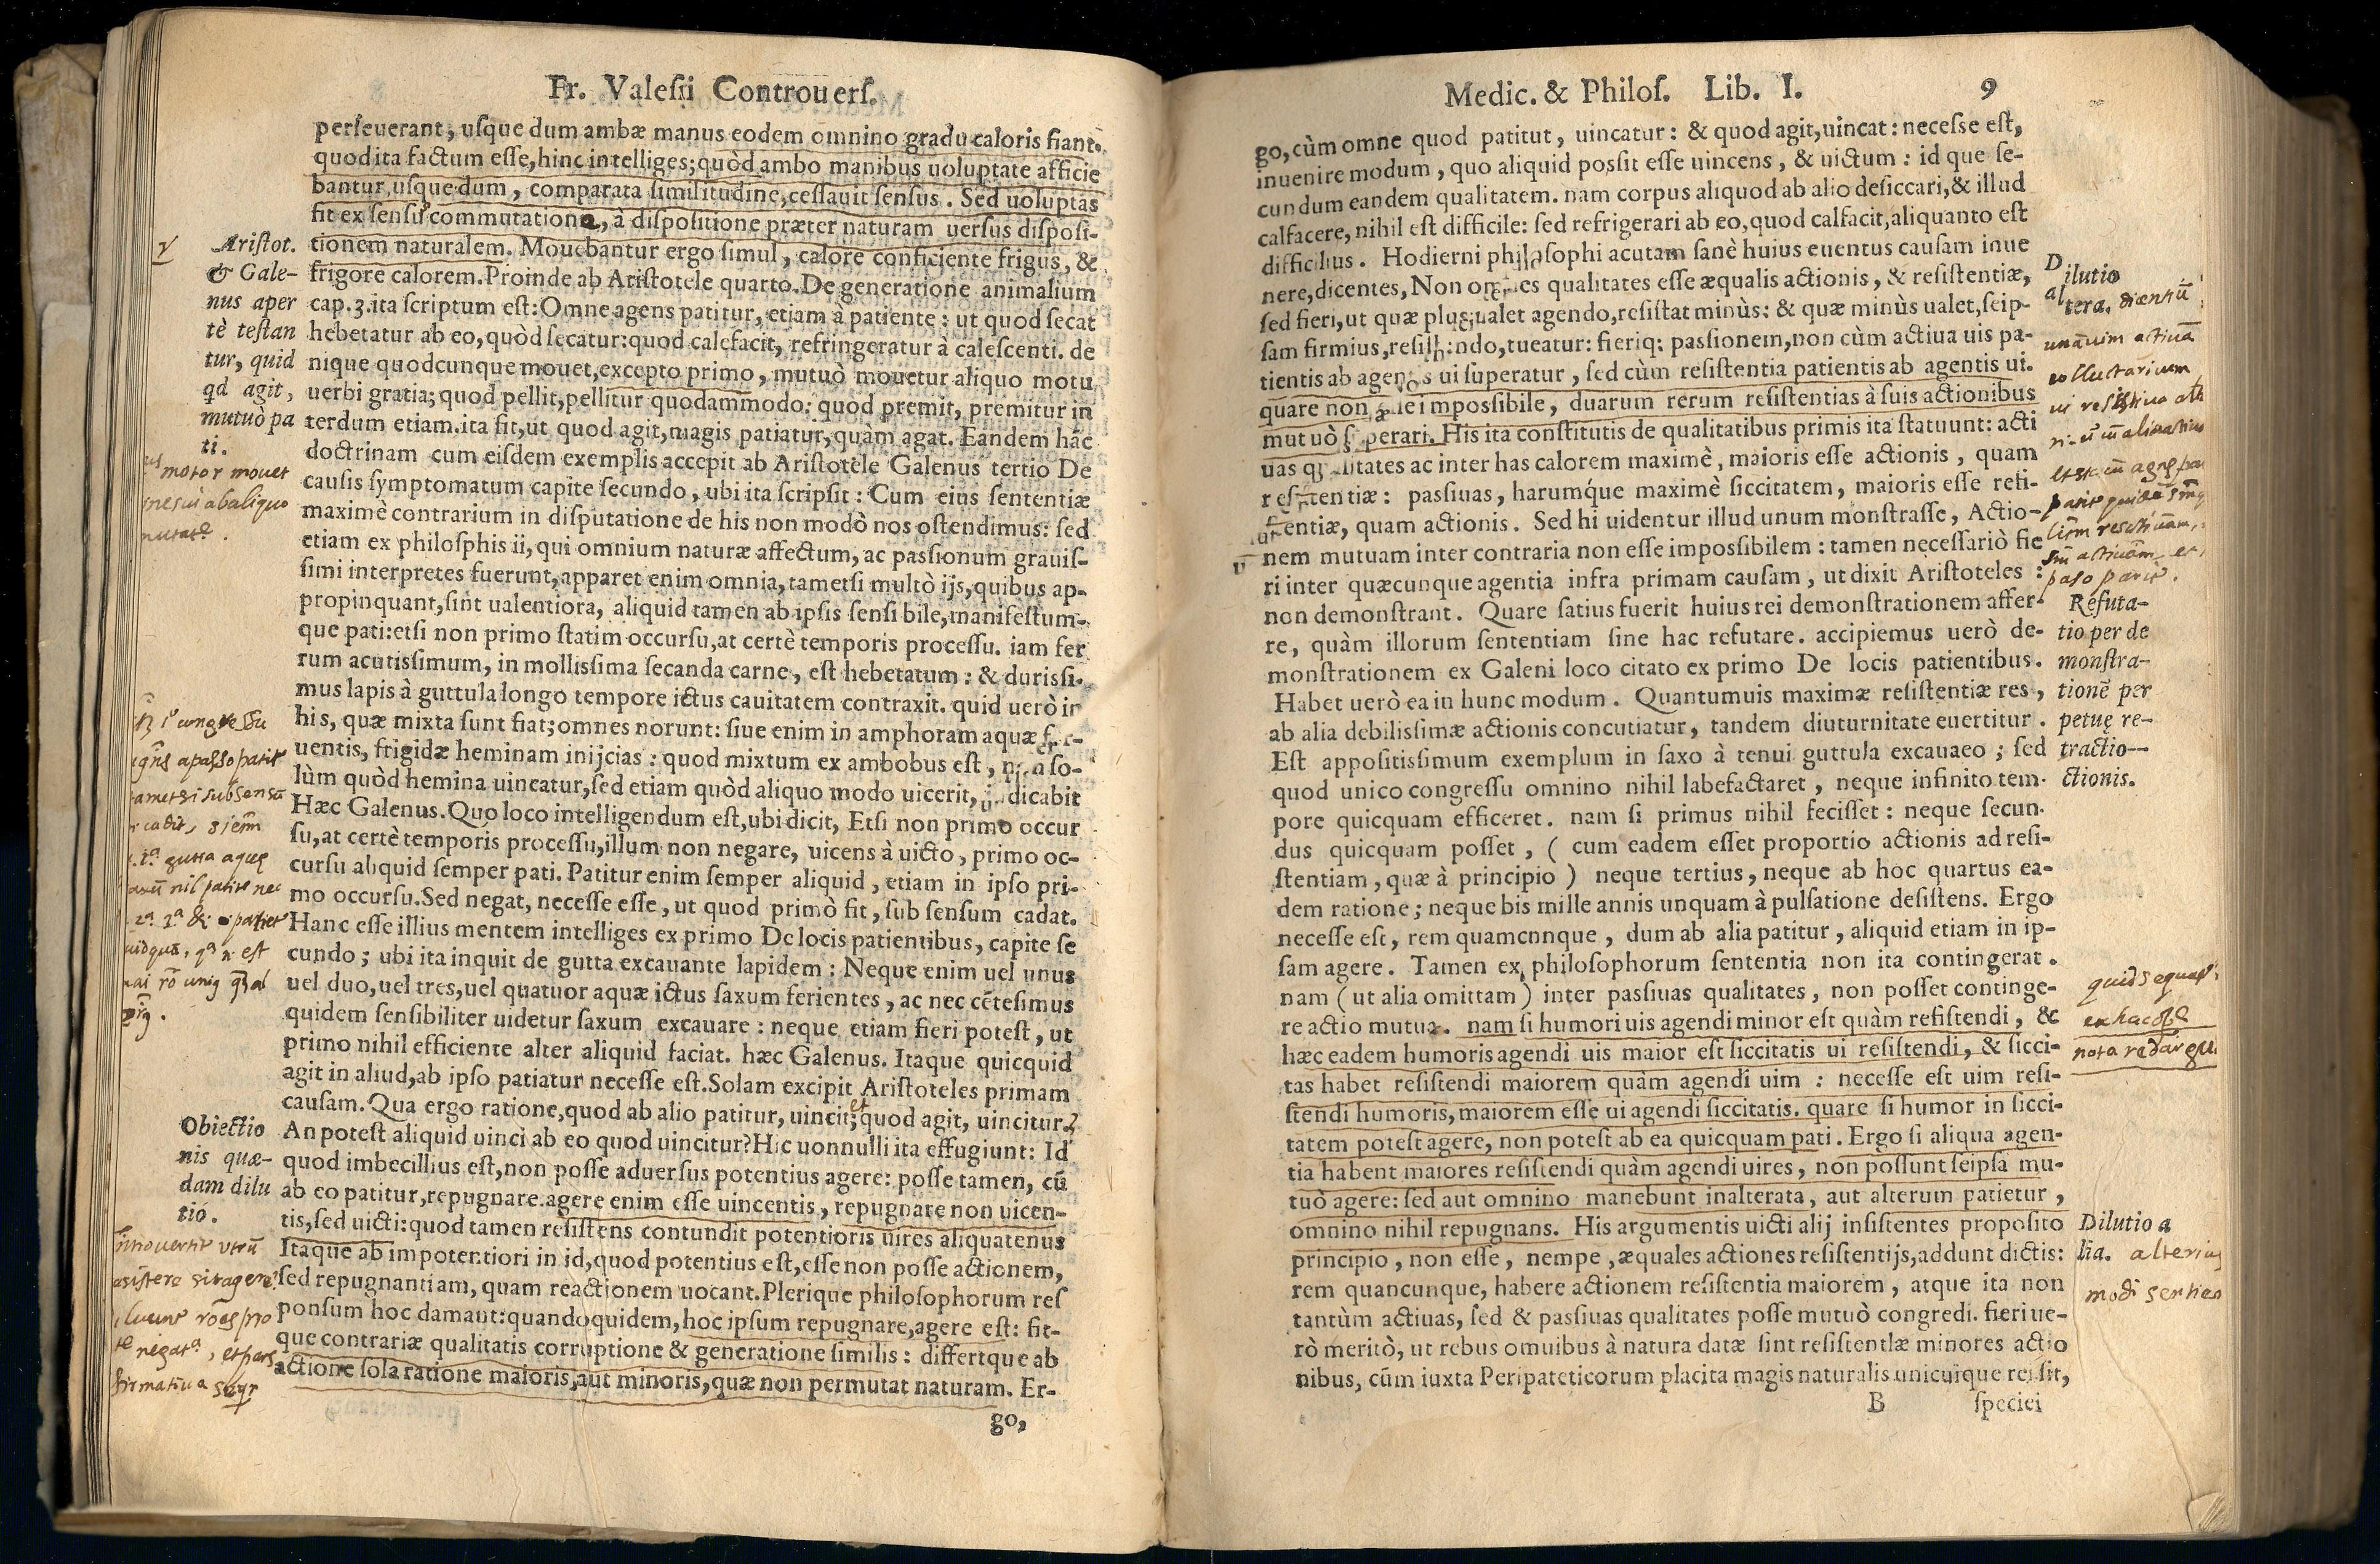 Fr. Valeſii Controuerſ.
perſeuerant, uſque dum ambæ manus eodem omnino gradu caloris fiant.
quod ita factum eſſe, hinc intelliges; quòd ambo manibus uoluptate afficie
bantur, uſque dum, comparata ſimilitudine, ceſſauit ſenſus. Sed uoluptas
fit ex ſenſu commutatione, à diſpoſitione præter naturam uerſus diſpoſi-
tionem naturalem. Mouebantur ergo ſimul, calore conficiente frigus, &
frigore calorem. Proinde ab Ariſtotele quarto. De generatione animalium
cap. 3. ita ſcriptum eſt: Omne agens patitur, etiam à patiente: ut quod ſecat
hebetatur ab eo, quòd ſecatur: quod calefacit, refringeratur à caleſcenti. de
nique quodcunque mouet, excepto primo, mutuò mouetur aliquo motu
uerbi gratia; quod pellit, pellitur quodammodo: quod premit, premitur in
terdum etiam. ita fit, ut quod agit, magis patiatur, quàm agat. Eandem hāc
doctrinam cum eiſdem exemplis accepit ab Ariſtotele Galenus tertio De
cauſis ſymptomatum capite ſecundo, ubi ita ſcripſit: Cum eius ſententiæ
maximè contrarium in diſputatione de his non modò nos oſtendimus: ſed
etiam ex philoſphis ii, qui omnium naturæ affectum, ac paſsionum grauiſ-
ſimi interpretes fuerunt, apparet enim omnia, tametſi multò ijs, quibus ap-
propinquant, ſint ualentiora, aliquid tamen ab ipſis ſenſi bile, manifeſtum-
que pati: etſi non primo ſtatim occurſu, at certè temporis proceſſu. iam fer
rum acutiſsimum, in molliſsima ſecanda carne, eſt hebetatum: & duriſsi-
mus lapis à guttula longo tempore ictus cauitatem contraxit. quid uerò in
his, quæ mixta ſunt fiat; omnes norunt: ſiue enim in amphoram aquæ fer-
uentis, frigidæ heminam inijcias: quod mixtum ex ambobus eſt, non ſo-
lùm quòd hemina uincatur, ſed etiam quòd aliquo modo uicerit, indicabit
Hæc Galenus. Quo loco intelligendum eſt, ubi dicit, Etſi non primo occur
ſu, at certè temporis proceſſu, illum non negare, uicens à uicto, primo oc-
curſu aliquid ſemper pati. Patitur enim ſemper aliquid, etiam in ipſo pri-
mo occurſu. Sed negat, neceſſe eſſe, ut quod primò fit, ſub ſenſum cadat.
Hanc eſſe illius mentem intelliges ex primo De locis patientibus, capite ſe
cundo; ubi ita inquit de gutta excauante lapidem: Neque enim uel unus
uel duo, uel tres, uel quatuor aquæ ictus ſaxum ferientes, ac nec cēteſimus
quidem ſenſibiliter uidetur ſaxum excauare: neque etiam fieri poteſt, ut
primo nihil efficiente alter aliquid faciat. hæc Galenus. Itaque quicquid
agit in aliud, ab ipſo patiatur neceſſe eſt. Solam excipit Ariſtoteles primam
cauſam. Qua ergo ratione, quod ab alio patitur, uincit; et quod agit, uincitur?
An poteſt aliquid uinci ab eo quod uincitur? Hic uonnulli ita effugiunt: Id
quod imbecillius eſt, non poſſe aduerſus potentius agere: poſſe tamen, cū
ab eo patitur, repugnare. agere enim eſſe uincentis, repugnare non uicen-
tis, ſed uicti: quod tamen reſiſtens contundit potentioris uires aliquatenus
Itaque ab impotentiori in id, quod potentius eſt, eſſe non poſſe actionem,
ſed repugnantiam, quam reactionem uocant. Plerique philoſophorum reſ
ponſum hoc damant: quandoquidem, hoc ipſum repugnare, agere eſt: fit-
que contrariæ qualitatis corruptione & generatione ſimilis: differtque ab
actione ſola ratione maioris, aut minoris, quæ non permutat naturam. Er-
go,
Ariſtot.
& Gale-
nus aper
tè teſtan
tur, quid
qd agit,
mutuò pa
ti.
motor mouet
Obiectio
nis quæ-
dam dilu
tio.
Medic. & Philoſ. Lib. I. 9
go, cùm omne quod patitut, uincatur: & quod agit, uincat: neceſſe eſt,
inuenire modum, quo aliquid poſsit eſſe uincens, & uictum: id que ſe-
cundum eandem qualitatem. nam corpus aliquod ab alio deſiccari, & illud
calfacere, nihil eſt difficile: ſed refrigerari ab eo, quod calfacit, aliquanto eſt
difficilius. Hodierni philoſophi acutam ſanè huius euentus cauſam inue
nere, dicentes, Non omnes qualitates eſſe æqualis actionis, & reſiſtentiæ,
ſed fieri, ut quæ plus ualet agendo, reſiſtat minùs: & quæ minùs ualet, ſeip-
ſam firmius, reſiſtendo, tueatur: fieriq; paſsionem, non cùm actiua uis pa-
tientis ab agentis ui ſuperatur, ſed cùm reſiſtentia patientis ab agentis ui.
quare non eſſe impoſsibile, duarum rerum reſiſtentias à ſuis actionibus
mutuò ſuperari. His ita conſtitutis de qualitatibus primis ita ſtatuunt: acti
uas qualitates ac inter has calorem maximè, maioris eſſe actionis, quam
reſiſtentiæ: paſsiuas, harumq́ue maximè ſiccitatem, maioris eſſe reſi-
ſtentiæ, quam actionis. Sed hi uidentur illud unum monſtraſſe, Actio-
nem mutuam inter contraria non eſſe impoſsibilem: tamen neceſſariò fie
ri inter quæcunque agentia infra primam cauſam, ut dixit Ariſtoteles:
non demonſtrant. Quare ſatius fuerit huius rei demonſtrationem affer-
re, quàm illorum ſententiam ſine hac refutare. accipiemus uerò de-
monſtrationem ex Galeni loco citato ex primo De locis patientibus.
Habet uerò ea in hunc modum. Quantumuis maximæ reſiſtentiæ res,
ab alia debiliſsimæ actionis concutiatur, tandem diuturnitate euertitur.
Eſt appoſitiſsimum exemplum in ſaxo à tenui guttula excauaeo; ſed
quod unico congreſſu omnino nihil labefactaret, neque infinito tem-
pore quicquam efficeret. nam ſi primus nihil feciſſet: neque ſecun-
dus quicquam poſſet, ( cum eadem eſſet proportio actionis ad reſi-
ſtentiam, quæ à principio ) neque tertius, neque ab hoc quartus ea-
dem ratione; neque bis mille annis unquam à pulſatione deſiſtens. Ergo
neceſſe eſt, rem quamcnnque, dum ab alia patitur, aliquid etiam in ip-
ſam agere. Tamen ex philoſophorum ſententia non ita contingerat.
nam (ut alia omittam) inter paſsiuas qualitates, non poſſet continge-
re actio mutua. nam ſi humori uis agendi minor eſt quàm reſiſtendi, &
hæc eadem humoris agendi uis maior eſt ſiccitatis ui reſiſtendi, & ſicci-
tas habet reſiſtendi maiorem quàm agendi uim: neceſſe eſt uim reſi-
ſtendi humoris, maiorem eſſe ui agendi ſiccitatis. quare ſi humor in ſicci-
tatem poteſt agere, non poteſt ab ea quicquam pati. Ergo ſi aliqua agen-
tia habent maiores reſiſtendi quàm agendi uires, non poſſunt ſeipſa mu-
tuò agere: ſed aut omnino manebunt inalterata, aut alterum patietur,
omnino nihil repugnans. His argumentis uicti alij inſiſtentes propoſito
principio, non eſſe, nempe, æquales actiones reſiſtentijs, addunt dictis:
rem quancunque, habere actionem reſiſtentia maiorem, atque ita non
tantùm actiuas, ſed & paſsiuas qualitates poſſe mutuò congredi. fieri ue-
rò meritò, ut rebus omuibus à natura datæ ſint reſiſtentiæ minores actio
nibus, cūm iuxta Peripateticorum placita magis naturalis unicuique rei ſit,
B ſpeciei
Dilutio
altera.
Refuta-
tio per de
monſtra-
tionē per
petuę re-
tractio-
ctionis.
Dilutio a
lia.